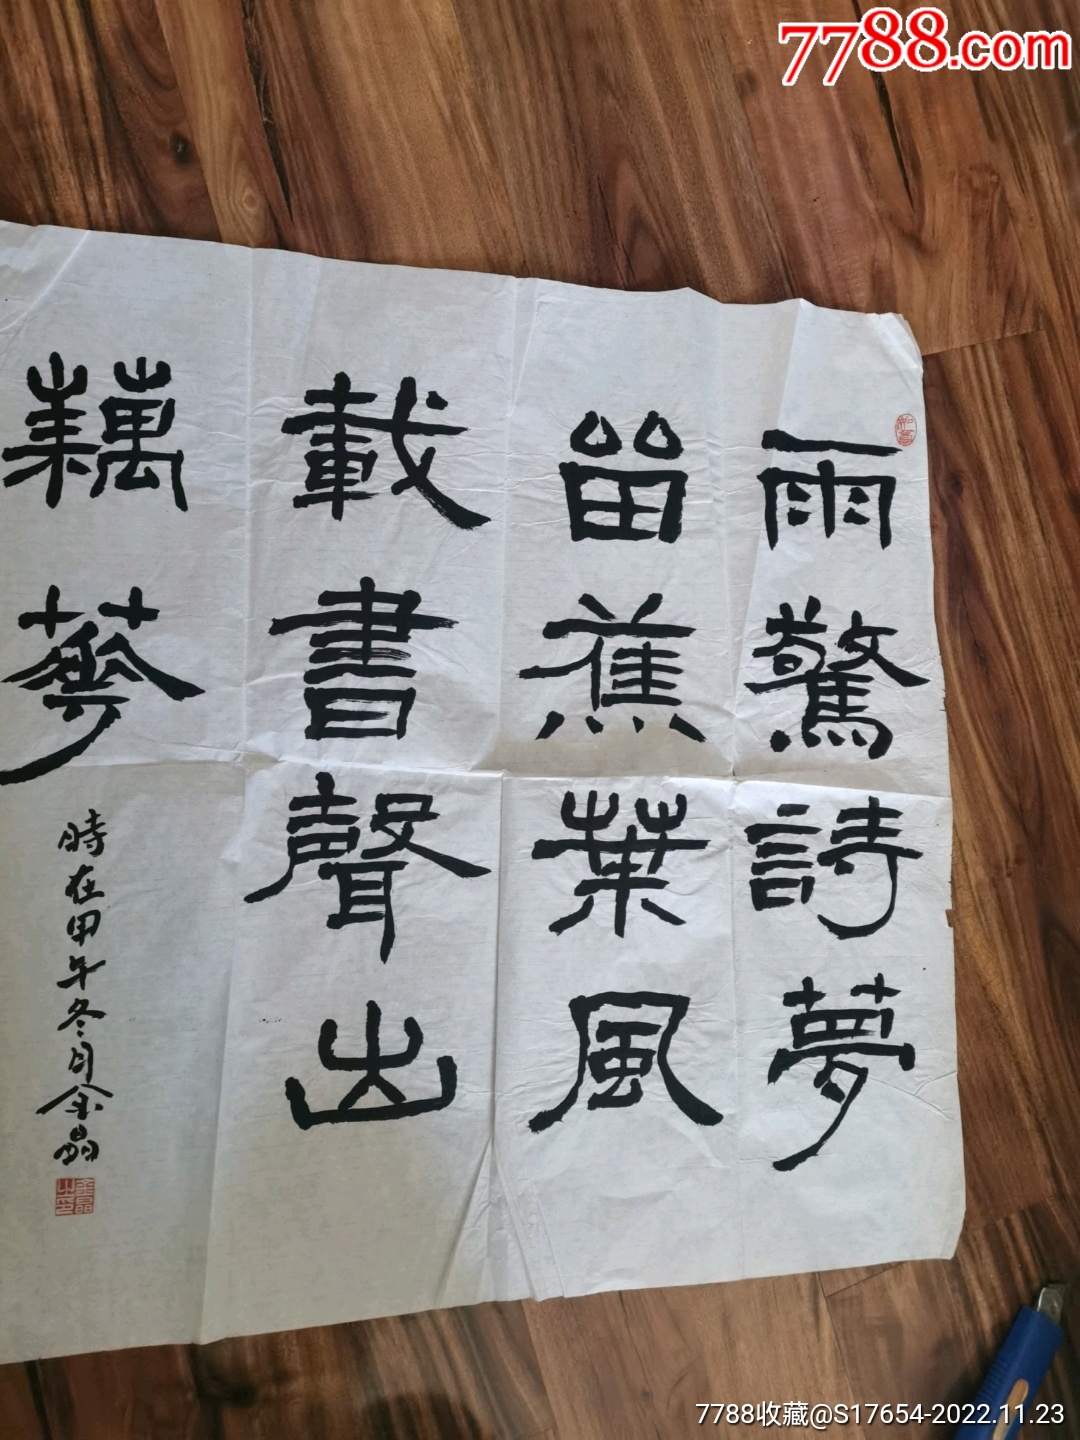 7788.com
雨驚詩夢
留蕉葉風
載書聲出
藕華
時在甲午冬月金晶
金晶之印
7788收藏@S17654-2022.11.23